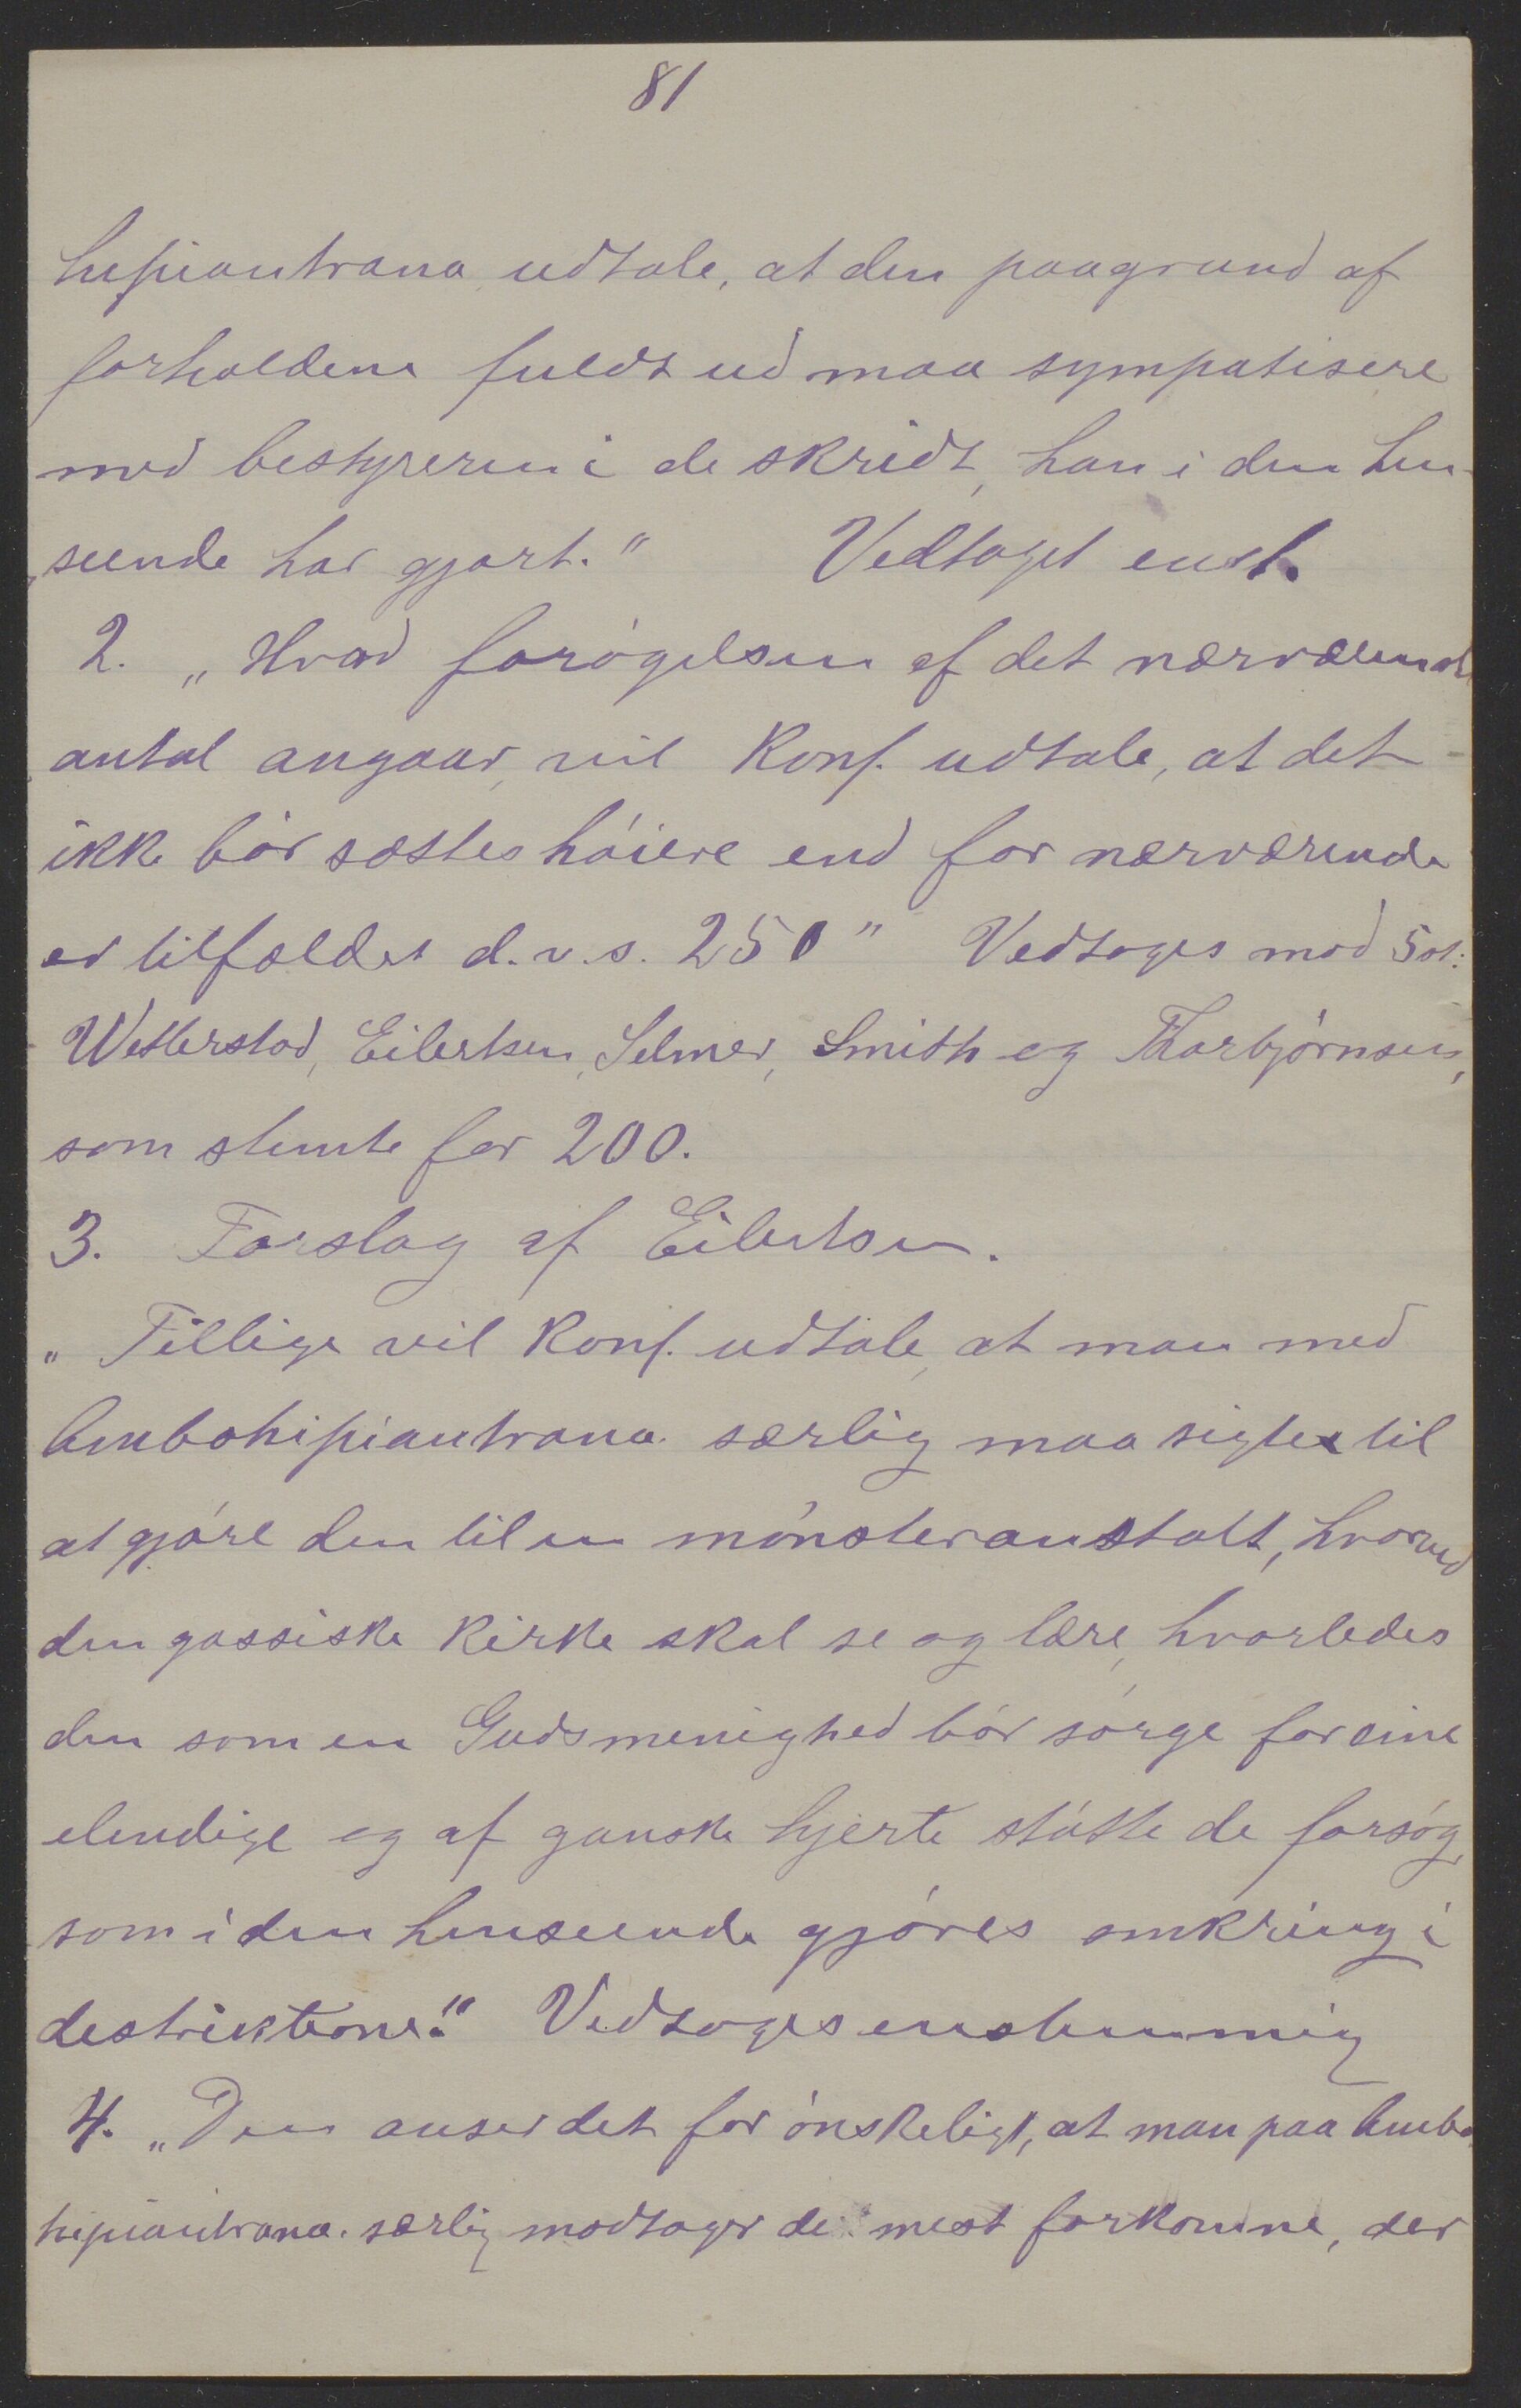 81
hipiantrana udtale, at den paagrund af
forholdene fuldt ud maa sympatisere
med bestyreren i de skridt, han i den hen-
seende har gjort." Vedtaget enst.
2. „Hvad forøgelsen af det nærværende
antal angaar, vil Konf. udtale, at det
ikke bör sættes höiere end for nærværende
er tilfældet d.v.s. 250" Vedtoges mod 5 st:
Wetterstad, Eilertsen, Selmer, Smith og Thorbjörnsen,
som stemte for 200.
3. Forslag af Eilertsen.
„Tillige vil Konf. udtale, at man med
Ambohipiantrana særlig maa sigte til
at gjöre den til en mönsteranstalt, hvorved
den gassiske Kirke skal se og lære, hvorledes
den som en Guds menighed bör sörge for sine
elendige og af ganske hjerte stötte de forsög,
som i den henseende gjöres omkring i
destrikterne." Vedtoges enstemmig
4. „Den anser det for önskeligt, at man paa Ambo
hipiantrana særlig modtager de mest forkomne, der